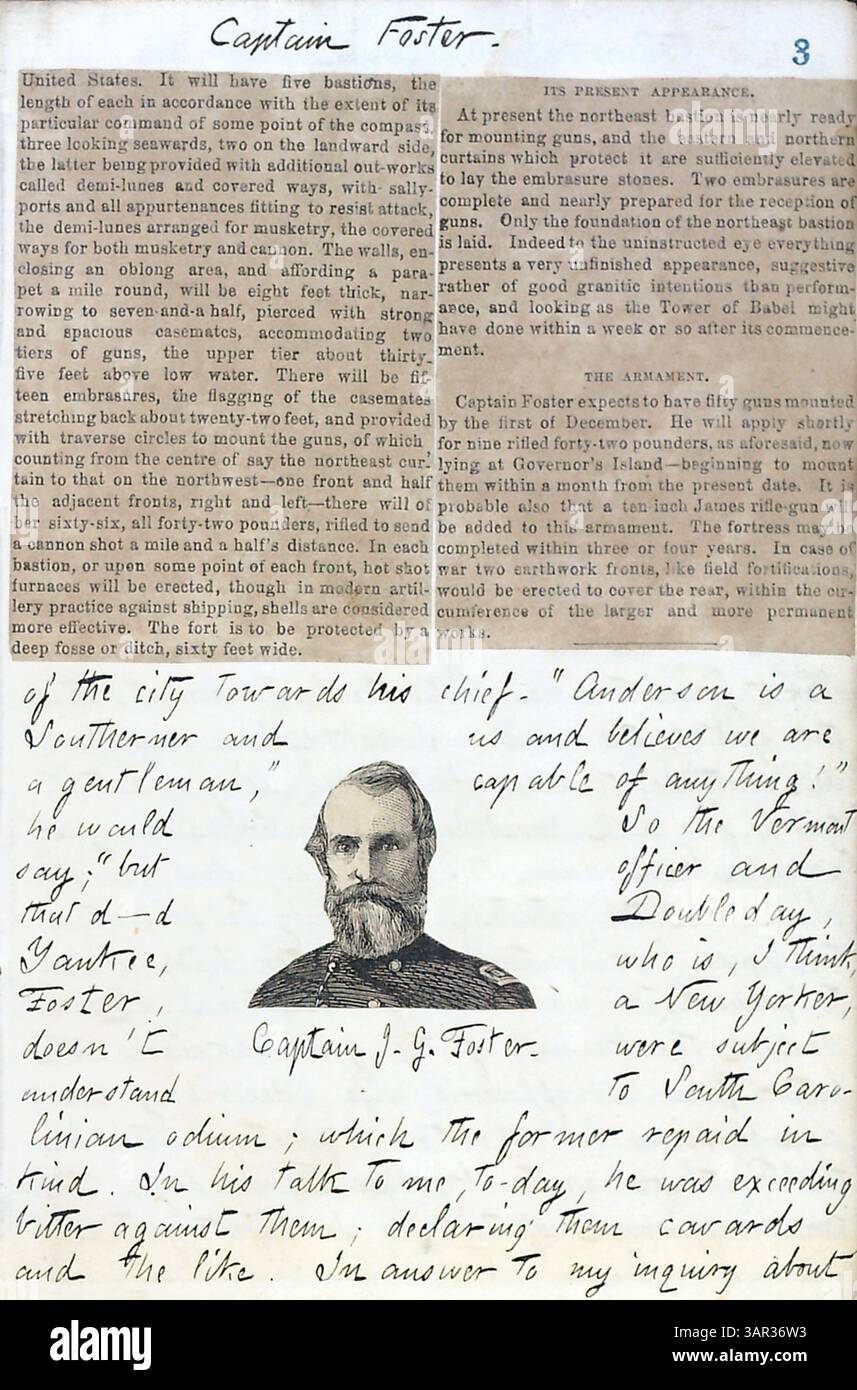 Captain Foster.
3
United States. It will have five bastions, the
length of each in accordance with the extent of its
particular command of some point of the compass,
three looking seawards, two on the landward side,
the latter being provided with additional out-works
called demi-lunes and covered ways, with sally-
ports and all appurtenances fitting to resist attack,
the demi-lunes arranged for musketry, the covered
ways for both musketry and cannon. The walls, en-
closing an oblong area, and affording a para-
pet a mile round, will be eight feet thick, nar-
rowing to seven-and-a half, pierced with strong
and spacious casemates, accommodating two
tiers of guns, the upper tier about thirty-
five feet above low water. There will be fif-
teen embrasures, the flagging of the casemates
stretching back about twenty-two feet, and provided
with traverse circles to mount the guns, of which
counting from the centre of say the northeast cur-
tain to that on the northwest—one front and half
the adjacent fronts, right and left—there will of
ber sixty-six, all forty-two pounders, rifled to send
a cannon shot a mile and a half's distance. In each
bastion, or upon some point of each front, hot shot
furnaces will be erected, though in modern artil-
lery practice against shipping, shells are considered
more effective. The fort is to be protected by a
deep fosse or ditch, sixty feet wide.
ITS PRESENT APPEARANCE.
At present the northeast bastion is nearly ready
for mounting guns, and the eastern and northern
curtains which protect it are sufficiently elevated
to lay the embrasure stones. Two embrasures are
complete and nearly prepared for the reception of
guns. Only the foundation of the northeast bastion
is laid. Indeed to the uninstructed eye everything
presents a very unfinished appearance, suggestive
rather of good granitic intentions than perform-
ance, and looking as the Tower of Babel might
have done within a week or so after its commence-
ment.
THE ARMAMENT.
Captain Foster expects to have fifty guns mounted
by the first of December. He will apply shortly
for nine rifled forty-two pounders, as aforesaid, now
lying at Governor's Island—beginning to mount
them within a month from the present date. It is
probable also that a ten inch James rifle-gun will
be added to this armament. The fortress may be
completed within three or four years. In case of
war two earthwork fronts, like field fortifications,
would be erected to cover the rear, within the cir-
cumference of the larger and more permanent
works.
of the city towards his chief. "Anderson is a
Southerner and
a gentleman,"
he would
say; "but
that d—d
Yankee,
Foster,
doesn't
understand
us and believes we are
capable of anything!"
So the Vermont
officer and
Doubleday,
who is, I think,
a New Yorker,
were subject
to South Caro-
Captain J. G. Foster.
linian odium; which the former repaid in
kind. In his talk to me, to-day, he was exceeding
bitter against them; declaring them cowards
and the like. In answer to my inquiry about
alamy
alamy
alamy
Image ID: 3AR36W3
www.alamy.com